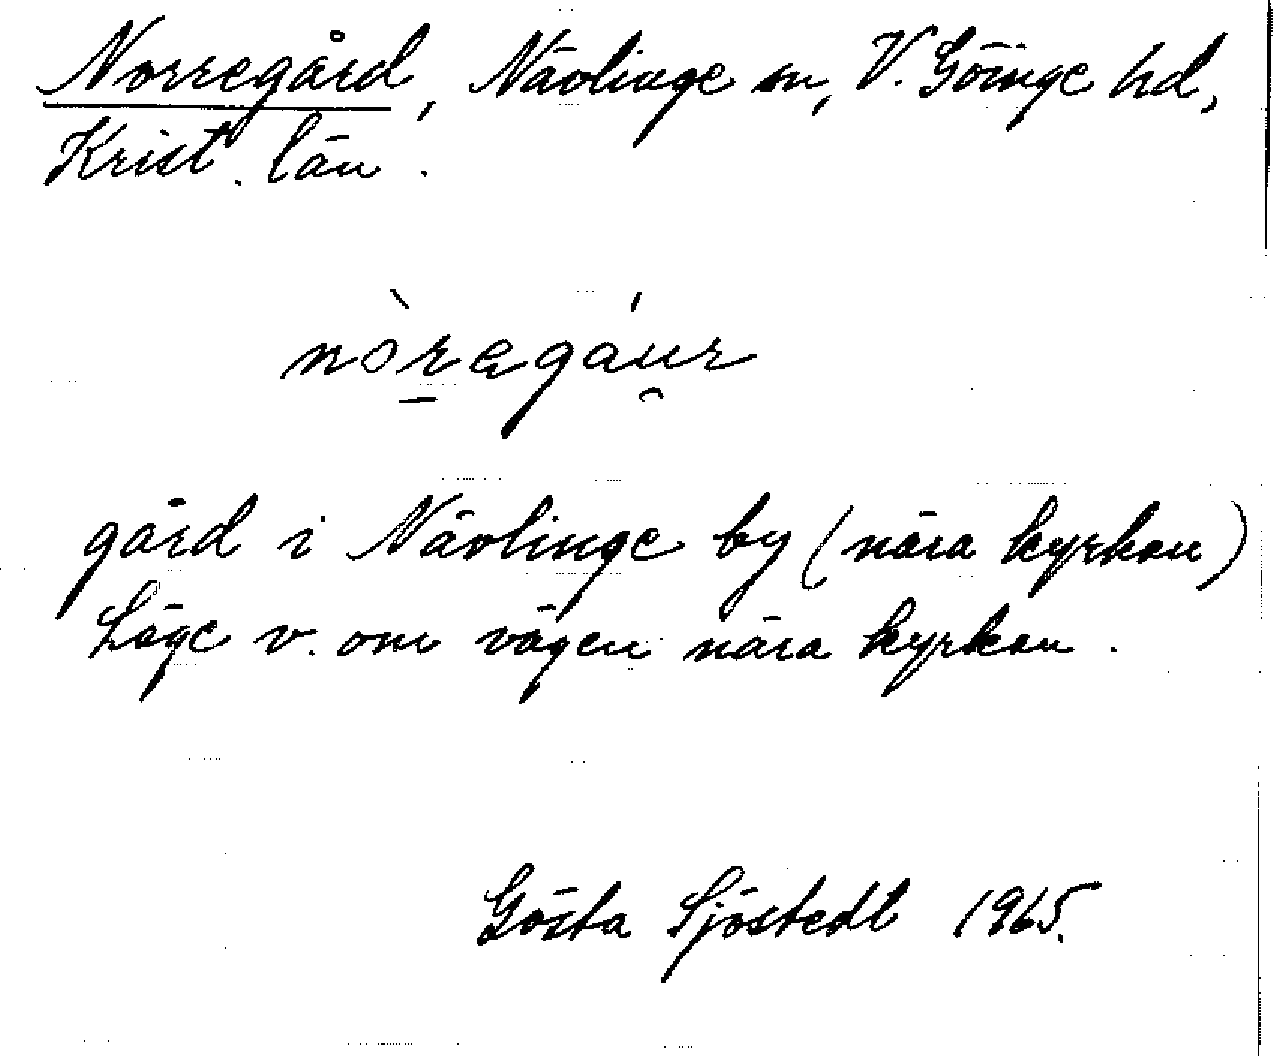 Norregård, Nävlinge sn, V. Göinge hd,
Krist. län.
nòregáu̯r
gård i Nävlinge by (nära kyrkan)
Läge v. om vägen nära kyrkan.
Gösta Sjöstedt 1965.